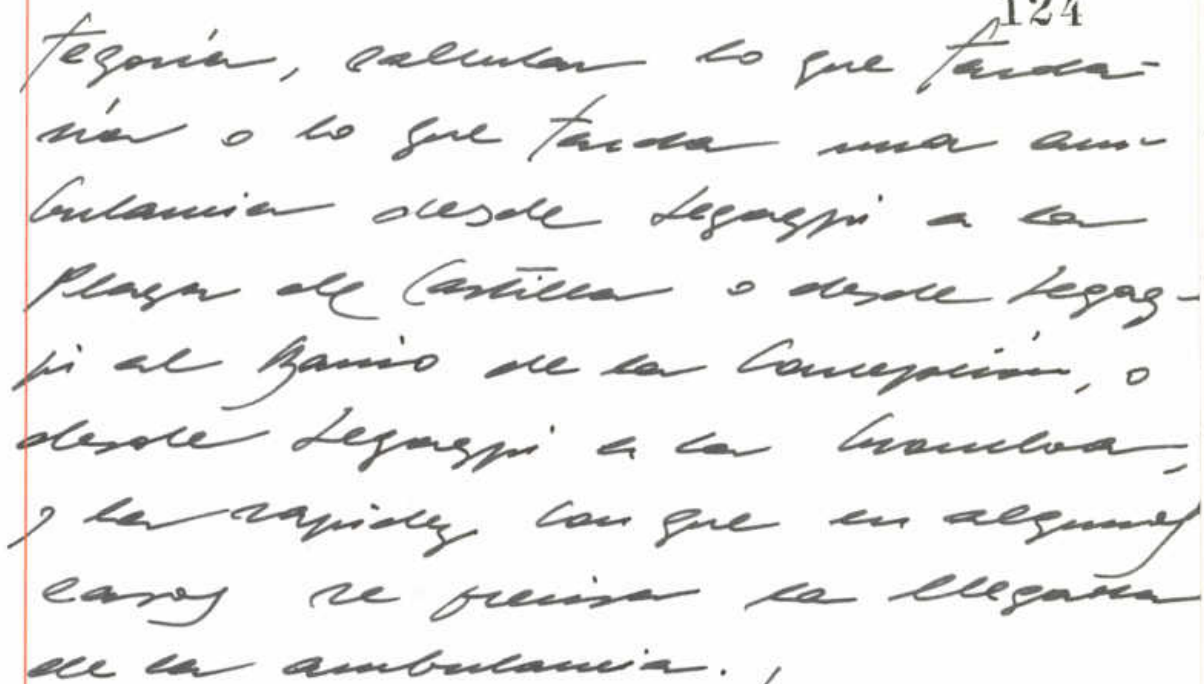 124
tegoría, calcular lo que tarda-
ría o lo que tarda una am-
bulancia desde Legazpi a la
Plaza de Castilla o desde Legaz-
pi al Barrio de la Concepción, o
desde Legazpi a la Moncloa,
y la rapidez con que en algunos
casos se precisa la llegada
de la ambulancia.